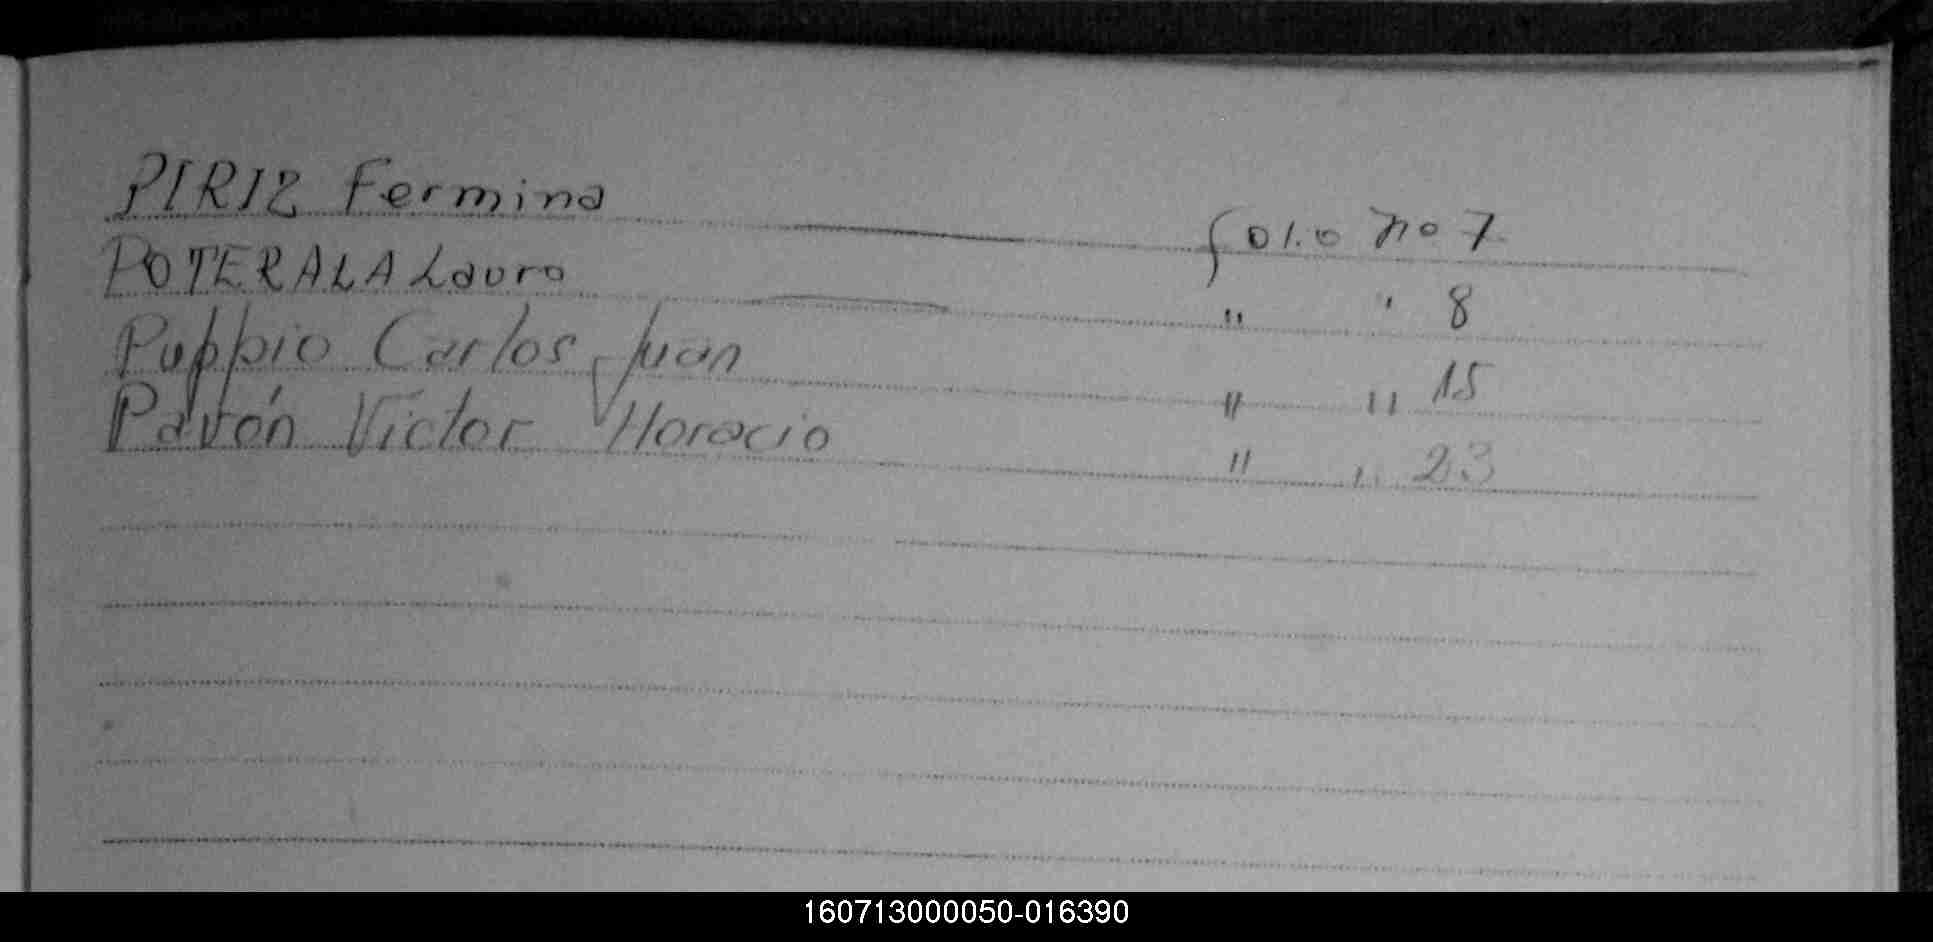 PIRIZ Fermina folio no 7
POTERALA Lauro " ' 8
Puppio Carlos Juan " " 15
Pavón Víctor Horacio " " 23
160713000050-016390